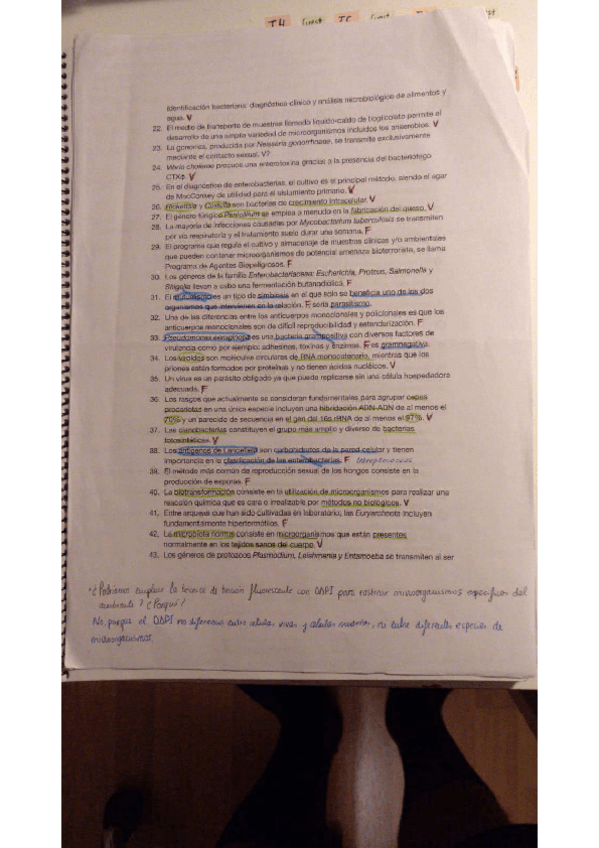 TH
TC
Identificación bacteriana: diagnóstico clínico y análisis microbiológico de alimentos y
agua. V
22. El medio de transporte de muestras llamado líquido-caldo de tioglicolato permite el
desarrollo de una amplia variedad de microorganismos incluidos los anaerobios. V
23. La gonorrea, producida por Nesseria gonorrhaeae, se transmite exclusivamente
mediante el contacto sexual. V?
24. Vibrio cholerae produce una enterotoxina gracias a la presencia del bacteriófago
CTXΦ. V
25. En el diagnóstico de enterobacterias, el cultivo es el principal método, siendo el agar
de MacConkey de utilidad para el aislamiento primario. V
26. Rickettsia y Coxiella son bacterias de crecimiento intracelular. V
27. El género fúngico Penicillium se emplea a menudo en la fabricación del queso. V
28. La mayoría de infecciones causadas por Mycobacterium tuberculosis se transmiten
por vía respiratoria y el tratamiento suele durar una semana. F
29. El programa que regula el cultivo y almacenaje de muestras clínicas y/o ambientales
que pueden contener microorganismos de potencial amenaza bioterrorista, se llama
Programa de Agentes Biopeligrosos. F
30. Los géneros de la familia Enterobacteriaceae: Escherichia, Proteus, Salmonella y
Shigella llevan a cabo una fermentación butanodiólica. F
31. El mutualismo es un tipo de simbiosis en el que solo se beneficia uno de los dos
organismos que intervienen en la relación. F sería parasitismo.
32. Una de las diferencias entre los anticuerpos monoclonales y policlonales es que los
anticuerpos monoclonales son de difícil reproducibilidad y estandarización. F
33. Pseudomonas aeruginosa es una bacteria grampositiva con diversos factores de
virulencia como por ejemplo: adhesinas, toxinas y enzimas. F es gramnegativa.
34. Los viroides son moléculas circulares de RNA monocatenario, mientras que los
priones están formados por proteínas y no tienen ácidos nucleicos. V
35. Un virus es un parásito obligado ya que puede replicarse sin una célula hospedadora
adecuada. F
36. Los rasgos que actualmente se consideran fundamentales para agrupar cepas
procariotas en una única especie incluyen una hibridación ADN-ADN de al menos el
70% y un parecido de secuencia en el gen del 16s rRNA de al menos el 97%. V
37. Las cianobacterias constituyen el grupo más amplio y diverso de bacterias
fotosintéticas. V
38. Los antígenos de Lancefield son carbohidratos de la pared celular y tienen
importancia en la clasificación de las enterobacterias. F Streptococcus
39. El método más común de reproducción sexual de los hongos consiste en la
producción de esporas. F
40. La biotransformación consiste en la utilización de microorganismos para realizar una
reacción química que es cara o irrealizable por métodos no biológicos. V
41. Entre arqueas que han sido cultivadas en laboratorio, las Euryarchaeota incluyen
fundamentalmente hipertermófilos. F
42. La microbiota normal consiste en microorganismos que están presentes
normalmente en los tejidos sanos del cuerpo. V
43. Los géneros de protozoos Plasmodium, Leishmania y Entamoeba se transmiten al ser
¿Podríamos emplear la técnica de tinción fluorescente con DAPI para rastrear microorganismos específicos del
ambiente? ¿Porqué?
No, porque el DAPI no diferencia entre células vivas y células muertas, ni entre diferentes especies de
microorganismos.